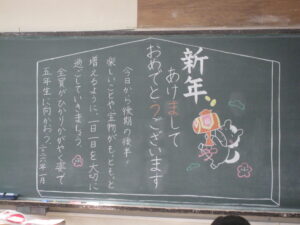 新年、
あけまして
おめでとうございます
今日から後期の後半。
楽しいことや宝物がもっともっと
増えるように、一日一日を大切に
過ごしていきましょう。
全員がひかりかがやく姿で
五年生に向かおう。